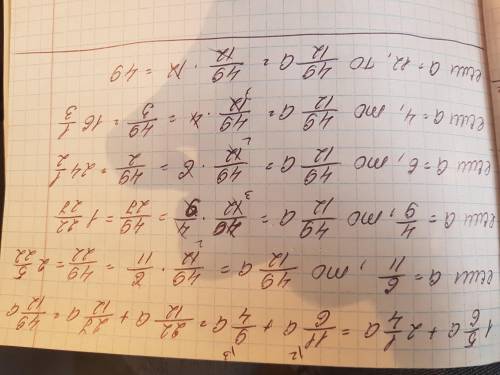 1 5/6 a + 2 1/4 a = 11/6 \2 a + 9/4 \3 a = 22/12 a + 27/12 a = 49/12 a
если a = 6/11, то 49/12 a = 49/12 2 · 6/11 = 49/22 = 2 5/22
если a = 4/9, то 49/12 a = 49/12 3 · 4/9 = 49/27 = 1 22/27
если a = 6, то 49/12 a = 49/12 2 · 6 = 49/2 = 24 1/2
если a = 4, то 49/12 a = 49/12 3 · 4 = 49/3 = 16 1/3
если a = 12, то 49/12 a = 49/12 · 12 = 49